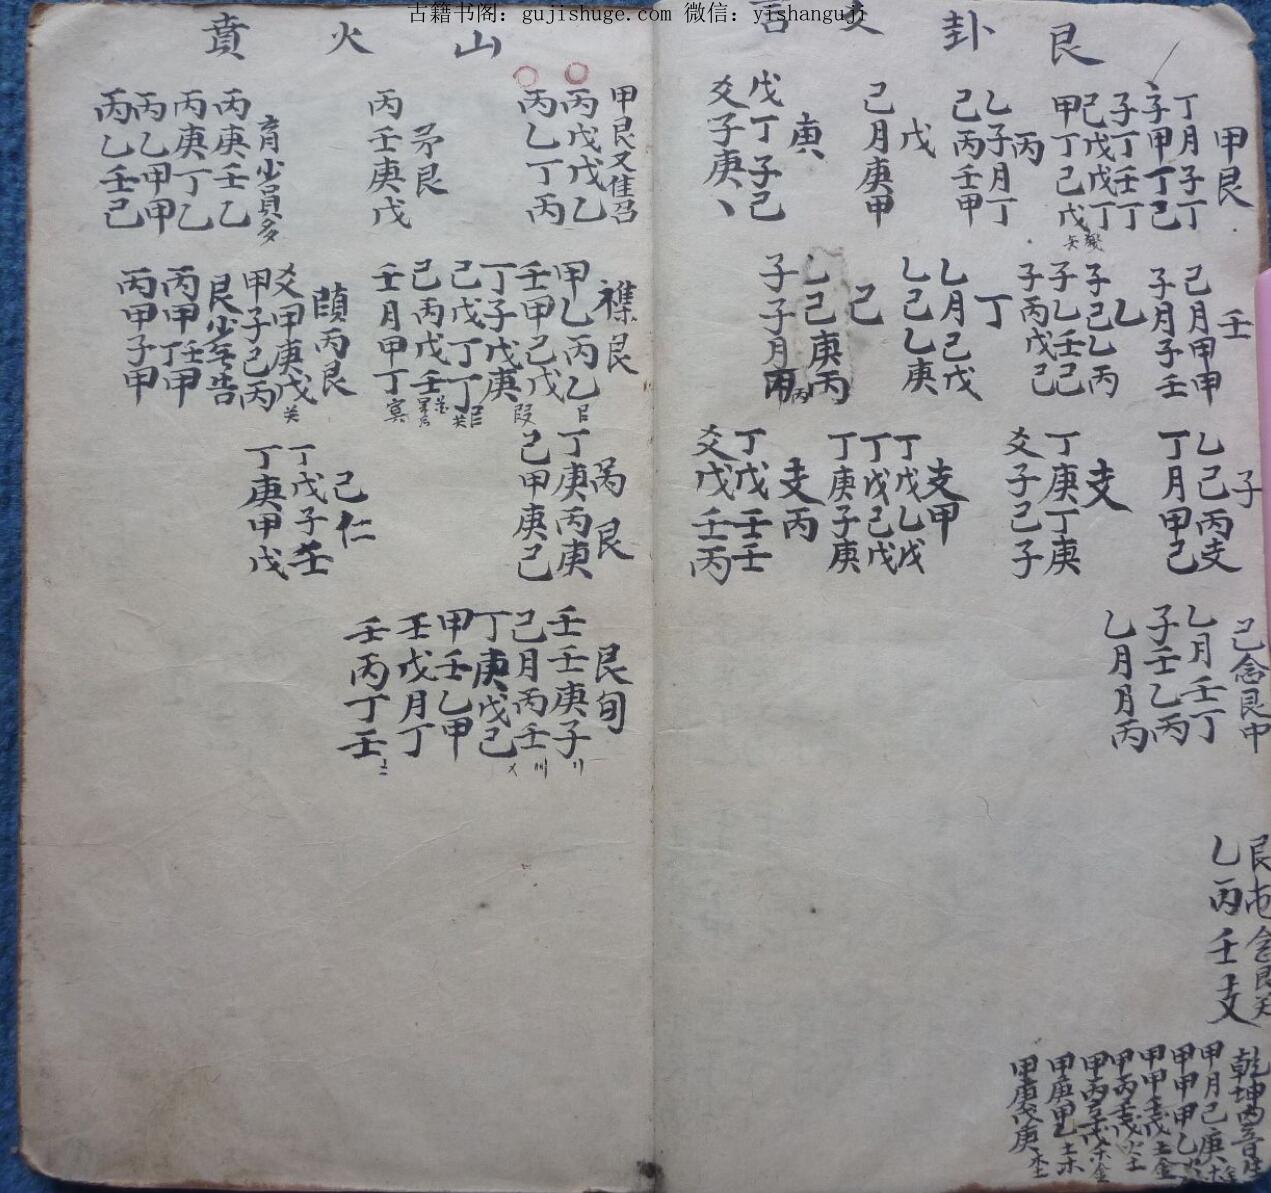 古籍书阁：gujishuge.com 微信：yishanguji
艮卦爻言
甲艮
丁月子丁
子甲丁己
子丁壬丁
己戊戊丁
甲丁己戊
丙
乙子月丁
己丙壬甲
戊
己月庚甲
庚
戊丁子己
爻子庚丶
壬
己月甲甲
子月子壬
乙
子己乙丙
子乙壬己
子丙戊己
丁
乙月己戊
乙己乙庚
己
乙己庚丙
子子月丙
子
乙己丙支
丁月甲己
支
丁庚丁庚
爻子己子
支甲
丁戊乙戊
丁戊己戊
丁庚子庚
支丙
丁戊壬壬
爻戊壬丙
己念艮中
乙月壬丁
子壬乙丙
乙月月丙
乙丙壬支
甲月己庚
甲甲甲乙
甲甲壬戊 土金
甲丙壬戊 火土
甲庚甲乙 土木
甲庚戊庚 木土
山火賁
甲艮又佳召
丙戊戊乙
丙乙丁丙
矛艮
丙壬庚戊
育少員多
丙庚壬乙
丙庚丁乙
丙乙甲甲
丙乙壬己
襍艮
甲乙丙乙
壬甲己戊
丁子戊庚
己戊丁丁
己丙戊壬
壬月甲丁
頤丙艮
爻甲庚戊
甲子己丙
艮少至告
丙甲壬甲
丙甲子甲
芮艮
丁庚丙庚
己甲庚己
己仁
丁戊子壬
丁庚甲戊
艮旬
壬壬庚子
己月丙壬
丁庚戊己
甲壬乙甲
壬戊月丁
壬丙丁壬